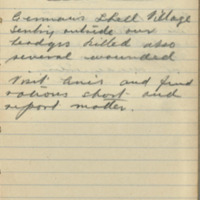 Germans Shell Village
Sentry outside our
hedqrs killed also
several wounded
Visit and find
rations short and
report matter.